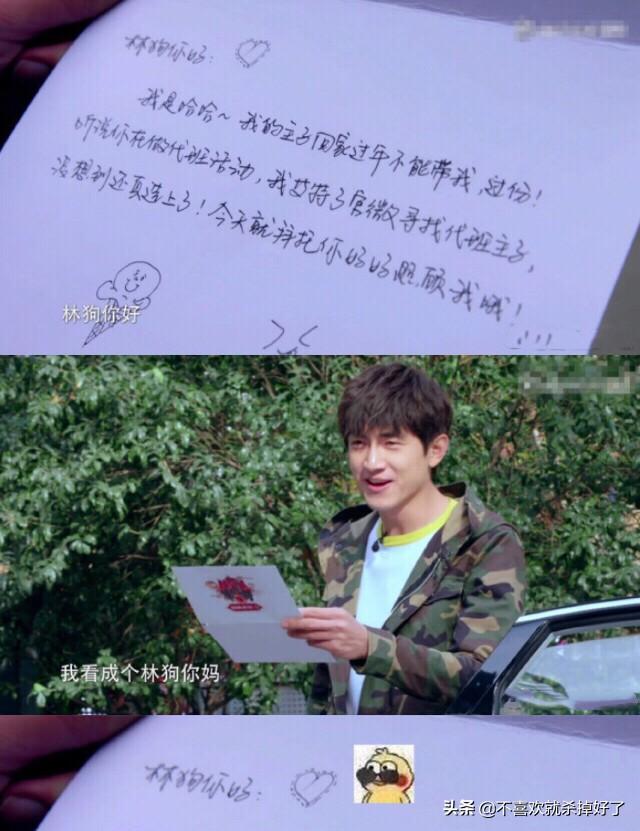 林狗你好：
我是哈哈～我的主子回家过年不能带我，过份！
听说你在做代班活动，我艾特了官微寻找代班主子，
没想到还真连上了！今天就拜托你好好照顾我哦！
林狗你好
我看成个林狗你妈
林狗你好：
头条 @不喜欢就杀掉好了